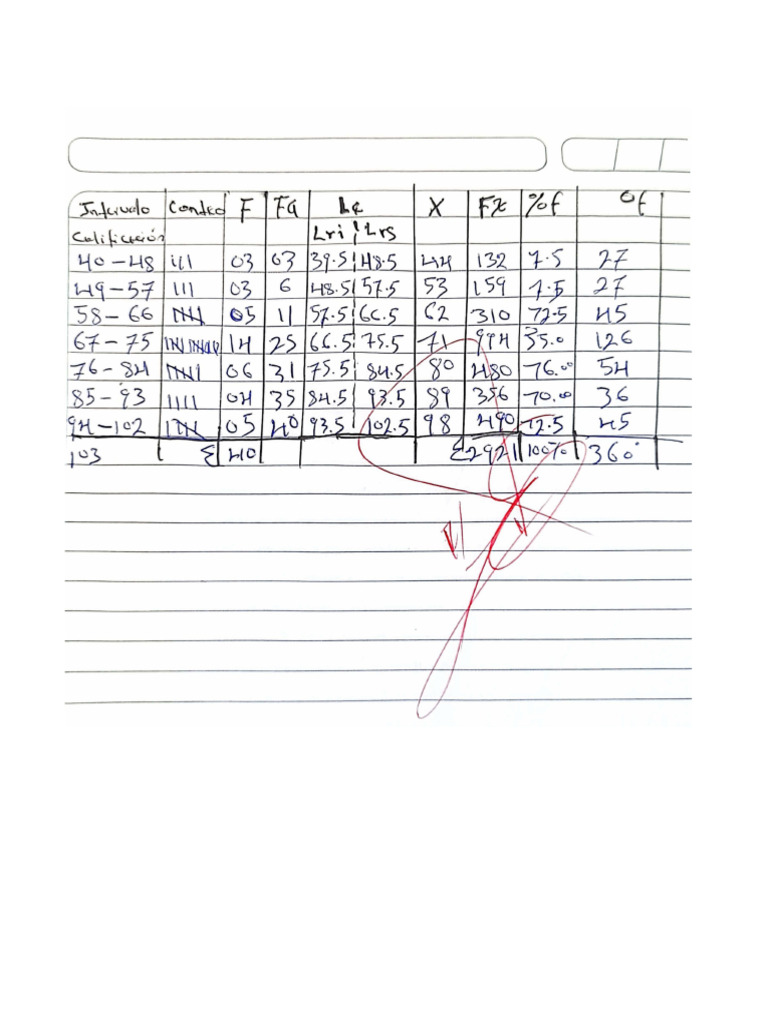 Intervalo Conteo F Fa Lc X FX %f °f
Calificación Lri Lrs
40-48 III 03 03 39.5 48.5 44 132 7.5 27
49-57 III 03 6 48.5 57.5 53 159 7.5 27
58-66 IIII 05 11 57.5 66.5 62 310 72.5 45
67-75 14 25 66.5 75.5 71 994 35.0 126
76-84 06 31 75.5 84.5 80 480 76.00 54
85-93 IIII 04 35 84.5 93.5 89 356 70.00 36
94-102 05 40 93.5 102.5 98 490 12.5 45
103 Σ 40 Σ2921 100% 360°